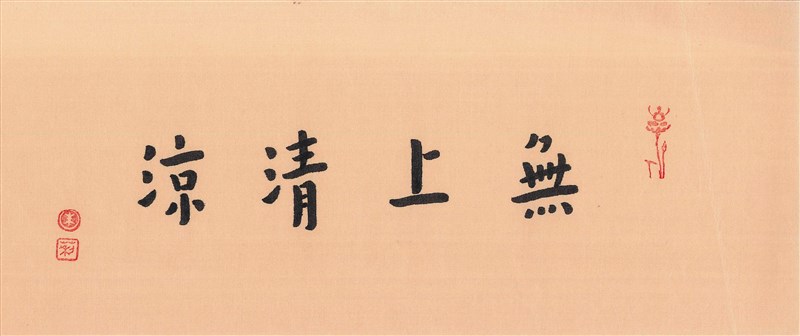 無上清涼